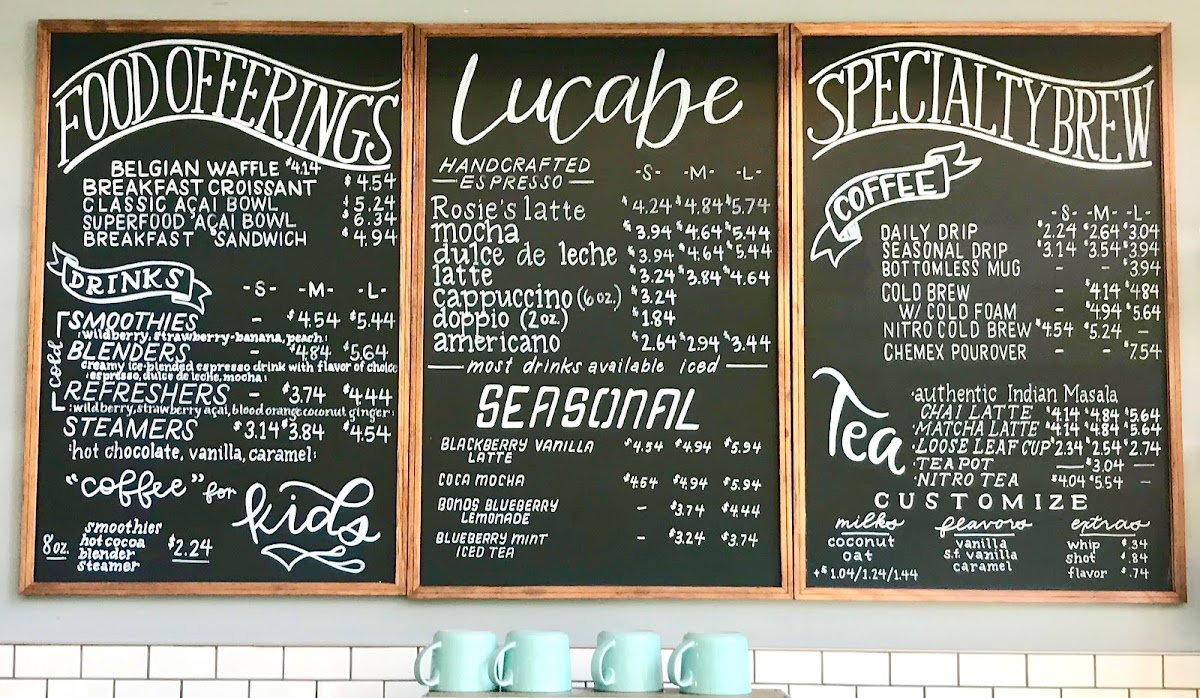 FOOD OFFERINGS
BELGIAN WAFFLE $4.14
BREAKFAST CROISSANT $4.54
CLASSIC AÇAI BOWL $5.24
SUPERFOOD AÇAI BOWL $6.34
BREAKFAST SANDWICH $4.94
DRINKS -S- -M- -L-
cold
SMOOTHIES - $4.54 $5.44
:wildberry, strawberry-banana, peach:
BLENDERS - $4.84 $5.64
creamy ice-blended espresso drink with flavor of choice
:espresso, dulce de leche, mocha:
REFRESHERS - $3.74 $4.44
:wildberry, strawberry açai, blood orange, coconut ginger:
STEAMERS $3.14 $3.84 $4.54
:hot chocolate, vanilla, caramel:
"coffee" for kids
8oz.
smoothies
hot cocoa
blender
steamer
$2.24
Lucabe
HANDCRAFTED
—ESPRESSO— -S- -M- -L-
Rosie's latte $4.24 $4.84 $5.74
mocha $3.94 $4.64 $5.44
dulce de leche $3.94 $4.64 $5.44
latte $3.24 $3.84 $4.64
cappuccino (6oz.) $3.24
doppio (2oz.) $1.84
americano $2.64 $2.94 $3.44
—most drinks available iced—
SEASONAL
BLACKBERRY VANILLA $4.54 $4.94 $5.94
LATTE
COCA MOCHA $4.54 $4.94 $5.94
BONDS BLUEBERRY - $3.74 $4.44
LEMONADE
BLUEBERRY MINT - $3.24 $3.74
ICED TEA
SPECIALTY BREW
COFFEE
-S- -M- -L-
DAILY DRIP $2.24 $2.64 $3.04
SEASONAL DRIP $3.14 $3.54 $3.94
BOTTOMLESS MUG - - $3.94
COLD BREW - $4.14 $4.84
W/ COLD FOAM $4.94 $5.64
NITRO COLD BREW $4.54 $5.24 -
CHEMEX POUROVER - - $7.54
Tea
·authentic Indian Masala
CHAI LATTE $4.14 $4.84 $5.64
·MATCHA LATTE $4.14 $4.84 $5.64
·LOOSE LEAF CUP $2.34 $2.54 $2.74
·TEA POT — $3.04 —
·NITRO TEA $4.04 $5.54 -
CUSTOMIZE
milks
coconut
oat
+$1.04/1.24/1.44
flavors
vanilla
s.f. vanilla
caramel
extras
whip $.34
shot $.84
flavor $.74